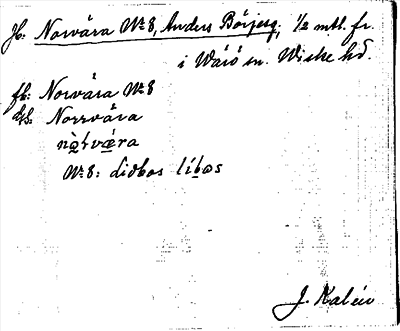 Jb: Norvära № 8, Anders Börjesg, 1/2 mtl. fr.
i Värö sn. Wiske hd.
fb: Norvära № 8
ds: Norrvära
nò̤rvæ̀ra
№ 8: Lidbos líbos
J. Kalén